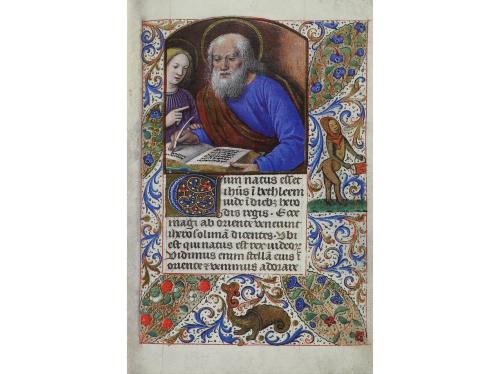 Cum natus esset
ihūs ī bethleem
iude ī diebz hero
dis regis. Ecce
magi ab oriente venerunt
iherosolimā dicentes. Vbi
est qui natus est rex iudeoꝝ
Vidimus enim stellā eius ī
oriente et venimus adorare